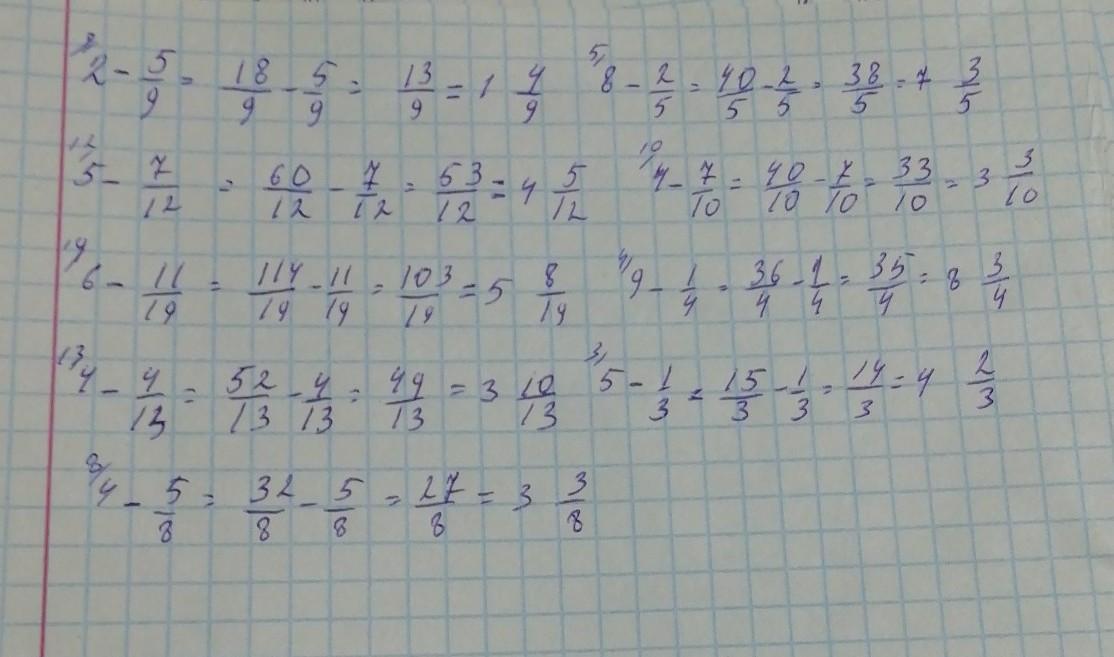 9/ 2 - 5/9 = 18/9 - 5/9 = 13/9 = 1 4/9 5/ 8 - 2/5 = 40/5 - 2/5 = 38/5 = 7 3/5
12/ 5 - 7/12 = 60/12 - 7/12 = 63/12 = 4 5/12 10/ 4 - 7/10 = 40/10 - 7/10 = 33/10 = 3 3/10
19/ 6 - 11/19 = 114/19 - 11/19 = 103/19 = 5 8/19 4/ 9 - 1/4 = 36/4 - 1/4 = 35/4 = 8 3/4
13/ 4 - 4/13 = 52/13 - 4/13 = 49/13 = 3 10/13 3/ 5 - 1/3 = 15/3 - 1/3 = 14/3 = 4 2/3
8/ 4 - 5/8 = 32/8 - 5/8 = 27/8 = 3 3/8